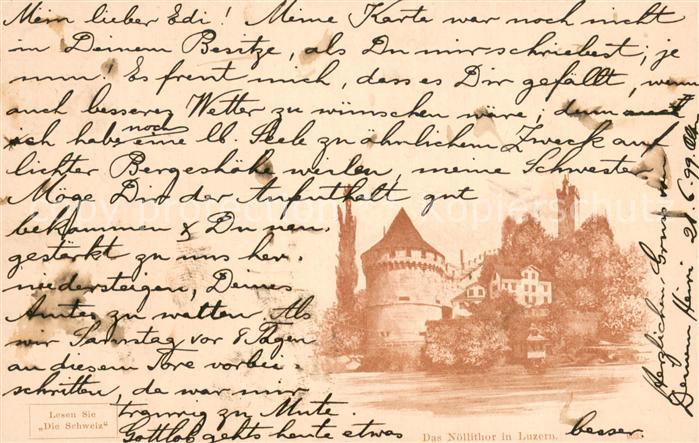 Mein lieber Edi! Meine Karte war noch nicht
in Deinem Besitze, als Du mir schriebest; je
nun! Es freut mich, dass es Dir gefällt, wenn
auch besseres Wetter zu wünschen wäre; denn
ich habe noch eine lb. Seele zu ähnlichem Zweck auf
lichter Bergeshöhe weilen, meine Schwester.
Möge Dir der Aufenthalt gut
bekommen & Du neu
gestärkt zu uns her-
niedersteigen, Deines
Amtes zu walten. Als
wir Samstag vor 8 Tagen
an diesem Tore vorbei
schritten, da war mir
traurig zu Mute.
Gottlob gehts heute etwas besser.
Herzlichen Gruss von
Deinem 21/6 99.
Lesen Sie
„Die Schweiz“
Das Nöllithor in Luzern.